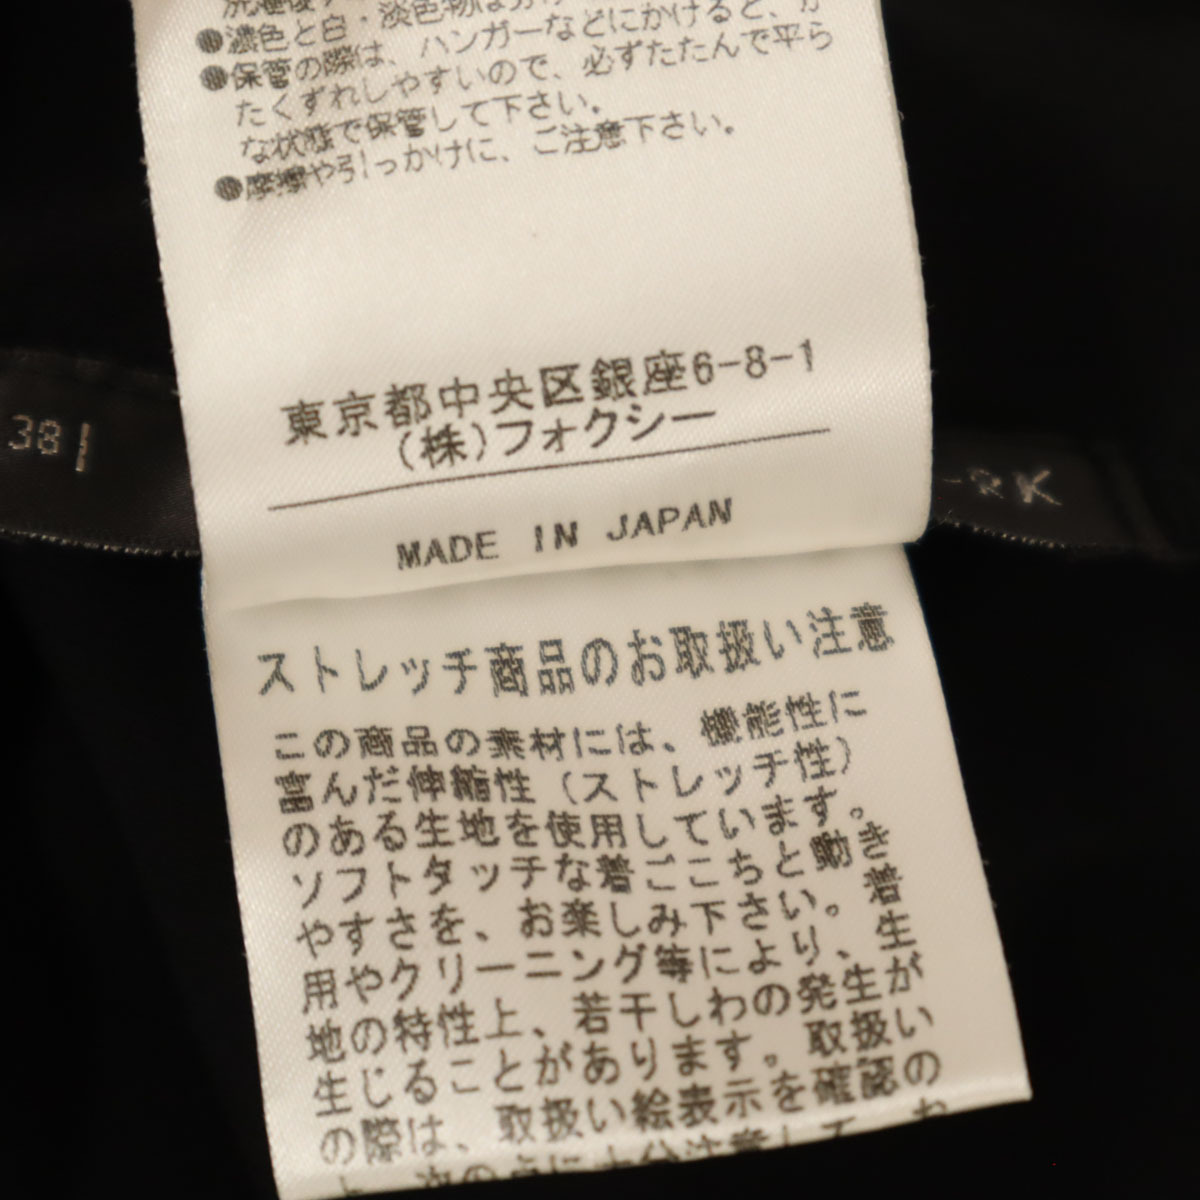 ●濃色と白・淡色物は分け
●保管の際は、ハンガーなどにかけると、か
たくずれしやすいので、必ずたたんで平ら
な状態で保管して下さい。
●摩擦や引っかけに、ご注意下さい。
東京都中央区銀座6-8-1
(株)フォクシー
MADE IN JAPAN
381
-RK
ストレッチ商品のお取扱い注意
この商品の素材には、機能性に
富んだ伸縮性(ストレッチ性)
のある生地を使用しています。
ソフトタッチな着ごこちと動き
やすさを、お楽しみ下さい。着
用やクリーニング等により、生
地の特性上、若干しわの発生が
生じることがあります。取扱い
の際は、取扱い絵表示を確認の
上、次の点に十分注意して、お